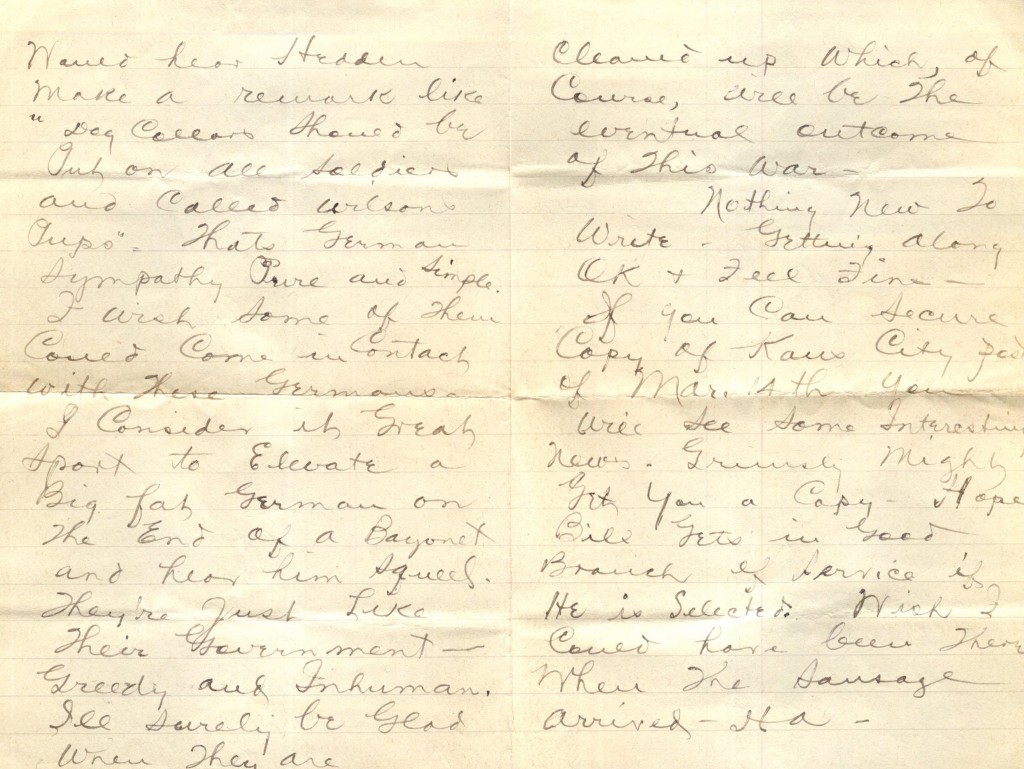 Would hear Hedden
Make a remark like
" Dog Collars should be
Put on all soldiers
and Called Wilsons
Pups"- Thats German
Sympathy Pure and Simple.
I wish some of Them
Could Come in Contact
with These Germans-
I Consider it Great
Sport to Elevate a
Big fat German on
The End of a Bayonet
and hear him squeel.
They're Just Like
Their Government-
Greedy and Inhuman.
Ill surely be Glad
When They are
Cleaned up Which, of
Course, will be The
eventual outcome
of This War-
Nothing New To
Write - Getting along
OK + Feel Fine-
If you Can Secure
Copy of Kans City Post
of Mar. 14th You
Will see some Interesting
News. Grimsly Might
Get You a Copy- Hope
Bill Gets in Good
Branch of Service if
He is Selected. Wish I
Could have been There
When The Sausage
Arrived- HA-